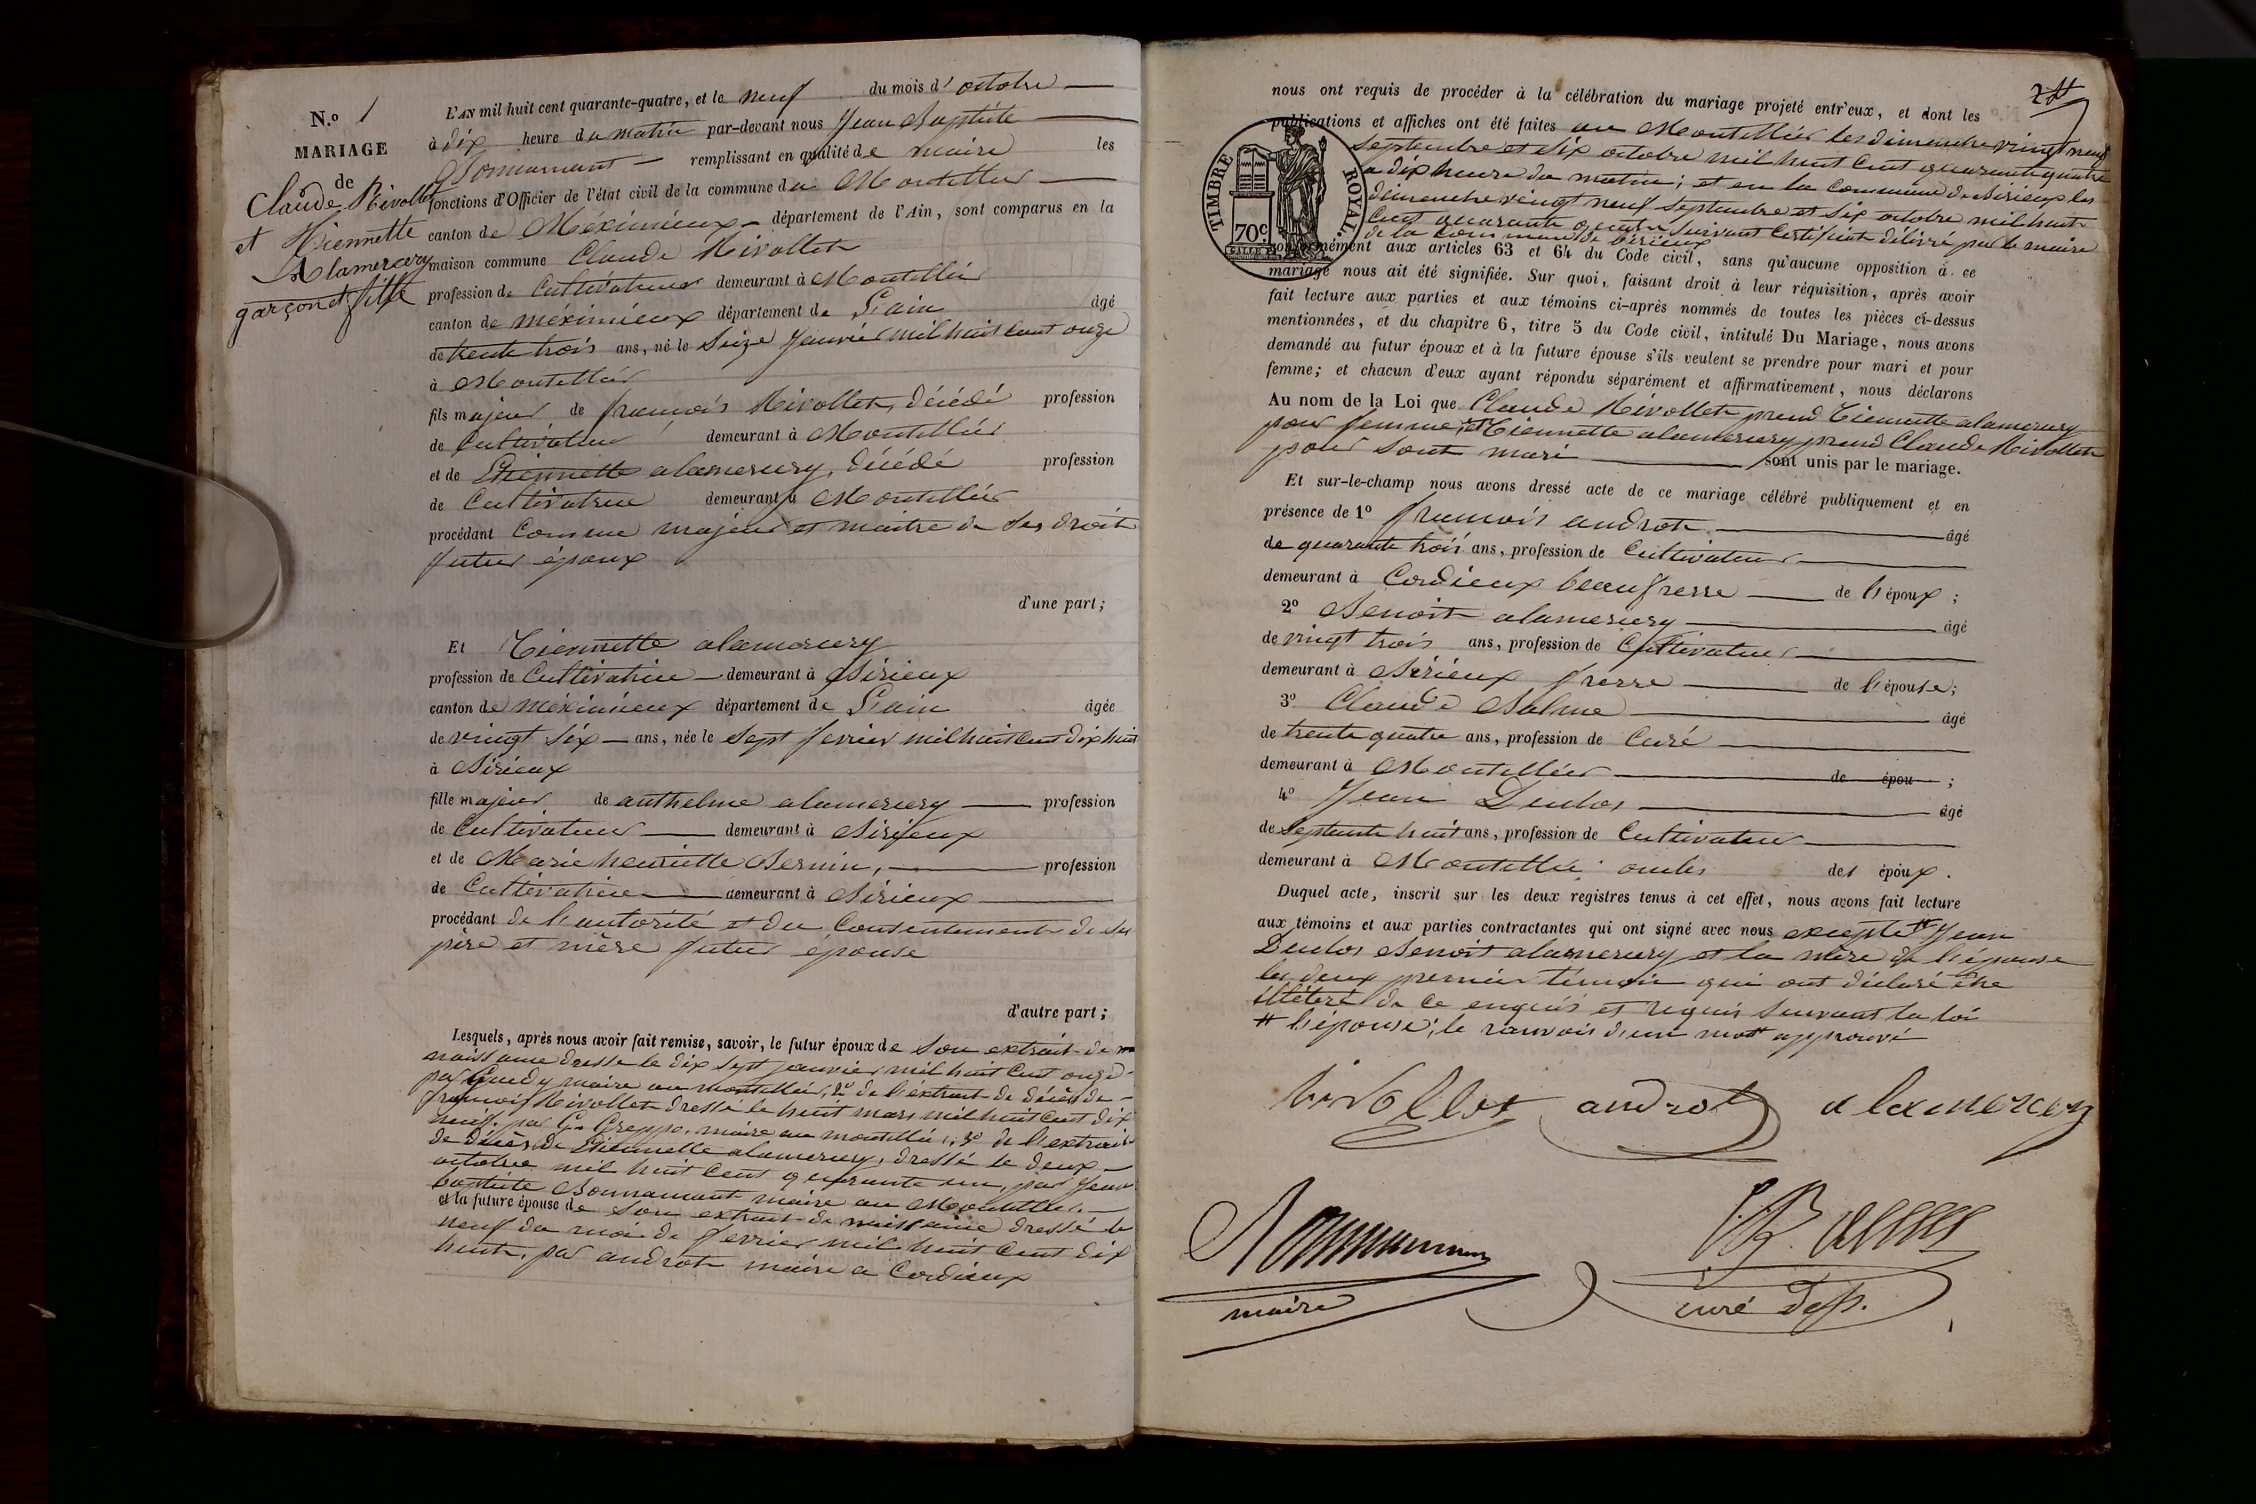 N.º 1
MARIAGE
de
Claude Rivollet
et Tiennette
Alamercery
garçon et fille
L'AN mil huit cent quarante-quatre, et le neuf du mois d' octobre
à dix heure du matin par-devant nous Jean Baptiste
Bonnamant remplissant en qualité de maire les
fonctions d'Officier de l'état civil de la commune du Montellier
canton de Méximieux département de l'Ain, sont comparus en la
maison commune Claude Rivollet
profession de Cultivateur demeurant à Montellier
canton de meximieux département de L'ain âgé
de trente trois ans, né le Seize Janvier mil huit cent onze
à Montellier
fils majeur de francois Rivollet, décédé profession
de Cultivateur demeurant à Montellier
et de Etiennette alamercery, décédé profession
de Cultivatrice demeurant à Montellier
procédant comme majeur et maitre de ses droit
futur époux
d'une part;
Et Tiennette alamercery
profession de Cultivatrice demeurant à Birieux
canton de méximieux département de L'ain âgée
de vingt six ans, née le sept fevrier mil huit cent dix huit
à Birieux
fille majeur de anthelme alamercery profession
de Cultivateur demeurant à Birieux
et de Marie henriette Bernin, profession
de Cultivatrice demeurant à Birieux
procédant de l'autorité et du Consentement de ses
père et mère futur épouse
d'autre part;
Lesquels, après nous avoir fait remise, savoir, le futur époux de son extrait de
naissance dresse le dix sept janvier mil huit cent onze
par Guedy maire au montellier, 2º de l'extrait de décès de
francois Rivollet dressé le huit mars mil huit cent dix
neuf. par Gn Greppo, maire au montellier, 3º de l'extrait
de décès de Etiennette alamercery, dressé le deux
octobre mil huit cent quarante un, par Jean
baptiste Bonnamant maire au Montellier.
et la future épouse de son extrait de naissance dressé le
neuf du moi de fevrier mil huit cent dix
huit. par androt maire a Cordieux
nous ont requis de procéder à la célébration du mariage projeté entr'eux, et dont les
publications et affiches ont été faites au Montellier les dimenche vingt neuf
septembre et six octobre mil huit cent quarante quatre
a dix heure du matin; et en la commune de Birieux les
dimenche vingt neuf septembre et six octobre mil huit
cent quarante quatre suivant certificat délivré par le maire
de la commune de birieux
TIMBRE ROYAL.
70c
conformément aux articles 63 et 64 du Code civil, sans qu'aucune opposition à ce
mariage nous ait été signifiée. Sur quoi, faisant droit à leur réquisition, après avoir
fait lecture aux parties et aux témoins ci-après nommés de toutes les pièces ci-dessus
mentionnées, et du chapitre 6, titre 5 du Code civil, intitulé Du Mariage, nous avons
demandé au futur époux et à la future épouse s'ils veulent se prendre pour mari et pour
femme; et chacun d'eux ayant répondu séparément et affirmativement, nous déclarons
Au nom de la Loi que Claude Rivollet prend Tiennette alamercery
pour femme, et Tiennette alamercery prend Claude Rivollet
pour sont mari sont unis par le mariage.
Et sur-le-champ nous avons dressé acte de ce mariage célébré publiquement et en
présence de 1º francois androt âgé
de quarante trois ans, profession de Cultivateur
demeurant à Cordieux beaufrerre de l'époux;
2º Benoit alamercery âgé
de vingt trois ans, profession de Cultivateur
demeurant à Birieux frerre de l'épouse;
3º Claude Balme âgé
de trente quatre ans, profession de Curé
demeurant à Montellier de épou ;
4º Jean Duclos âgé
de septante huit ans, profession de Cultivateur
demeurant à Montellier oncle des époux.
Duquel acte, inscrit sur les deux registres tenus à cet effet, nous avons fait lecture
aux témoins et aux parties contractantes qui ont signé avec nous excepté # Jean
Duclos Benoit alamercery et la mère de l'épouse
les deux premier témoin qui ont déclaré être
illétéré de ce enquis et requis suivant la loi
# l'épouse; le ranvois d'un mot approuvé
Rivollet androt alamercery
Bonnamant
maire
curé